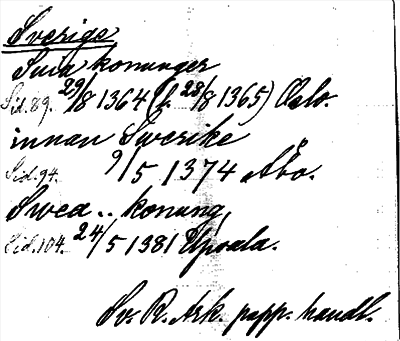 Sverige
Svea konunger
Sid. 89. 29/8 1364 (l. 28/8 1365) Oslo.
innan Swerike
Sid. 94. 9/5 1374 Åbo.
Swea .. konung,
Sid. 104. 24/5 1381 Upsala.
Sv. R. Ark. papp. handl.